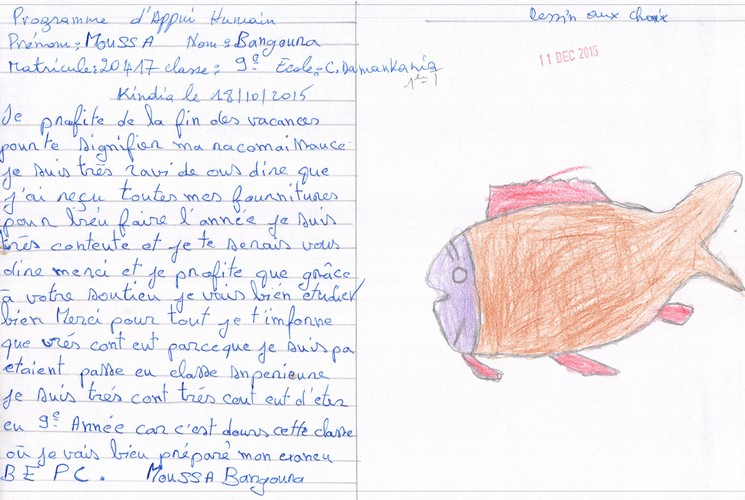 Programme d'Appui Humain
Prénom: MOUSSA Nom: Bangoura
Matricule: 20417 classe: 9e Ecole: C. Damankania
Kindia le 18/10/2015
Je profite de la fin des vacances
pour te signifier ma racomaissance
je suis très ravi de ous dire que
j'ai reçu toutes mes fournitures
pour bien faire l'année je suis
très contente et je te serais vous
dire merci et je profite que grâce
à votre soutien je vais bien étudier
bien Merci pour tout je t'informe
que vrés cont ent parceque je suis pa
etaient passe en classe superieure
je suis très cont très cont ent d'etre
en 9e Année car c'est dans cette classe
où je vais bien préparé mon examen
B E P C. MOUSSA Bangoura
Dessin aux choix
11 DEC 2015